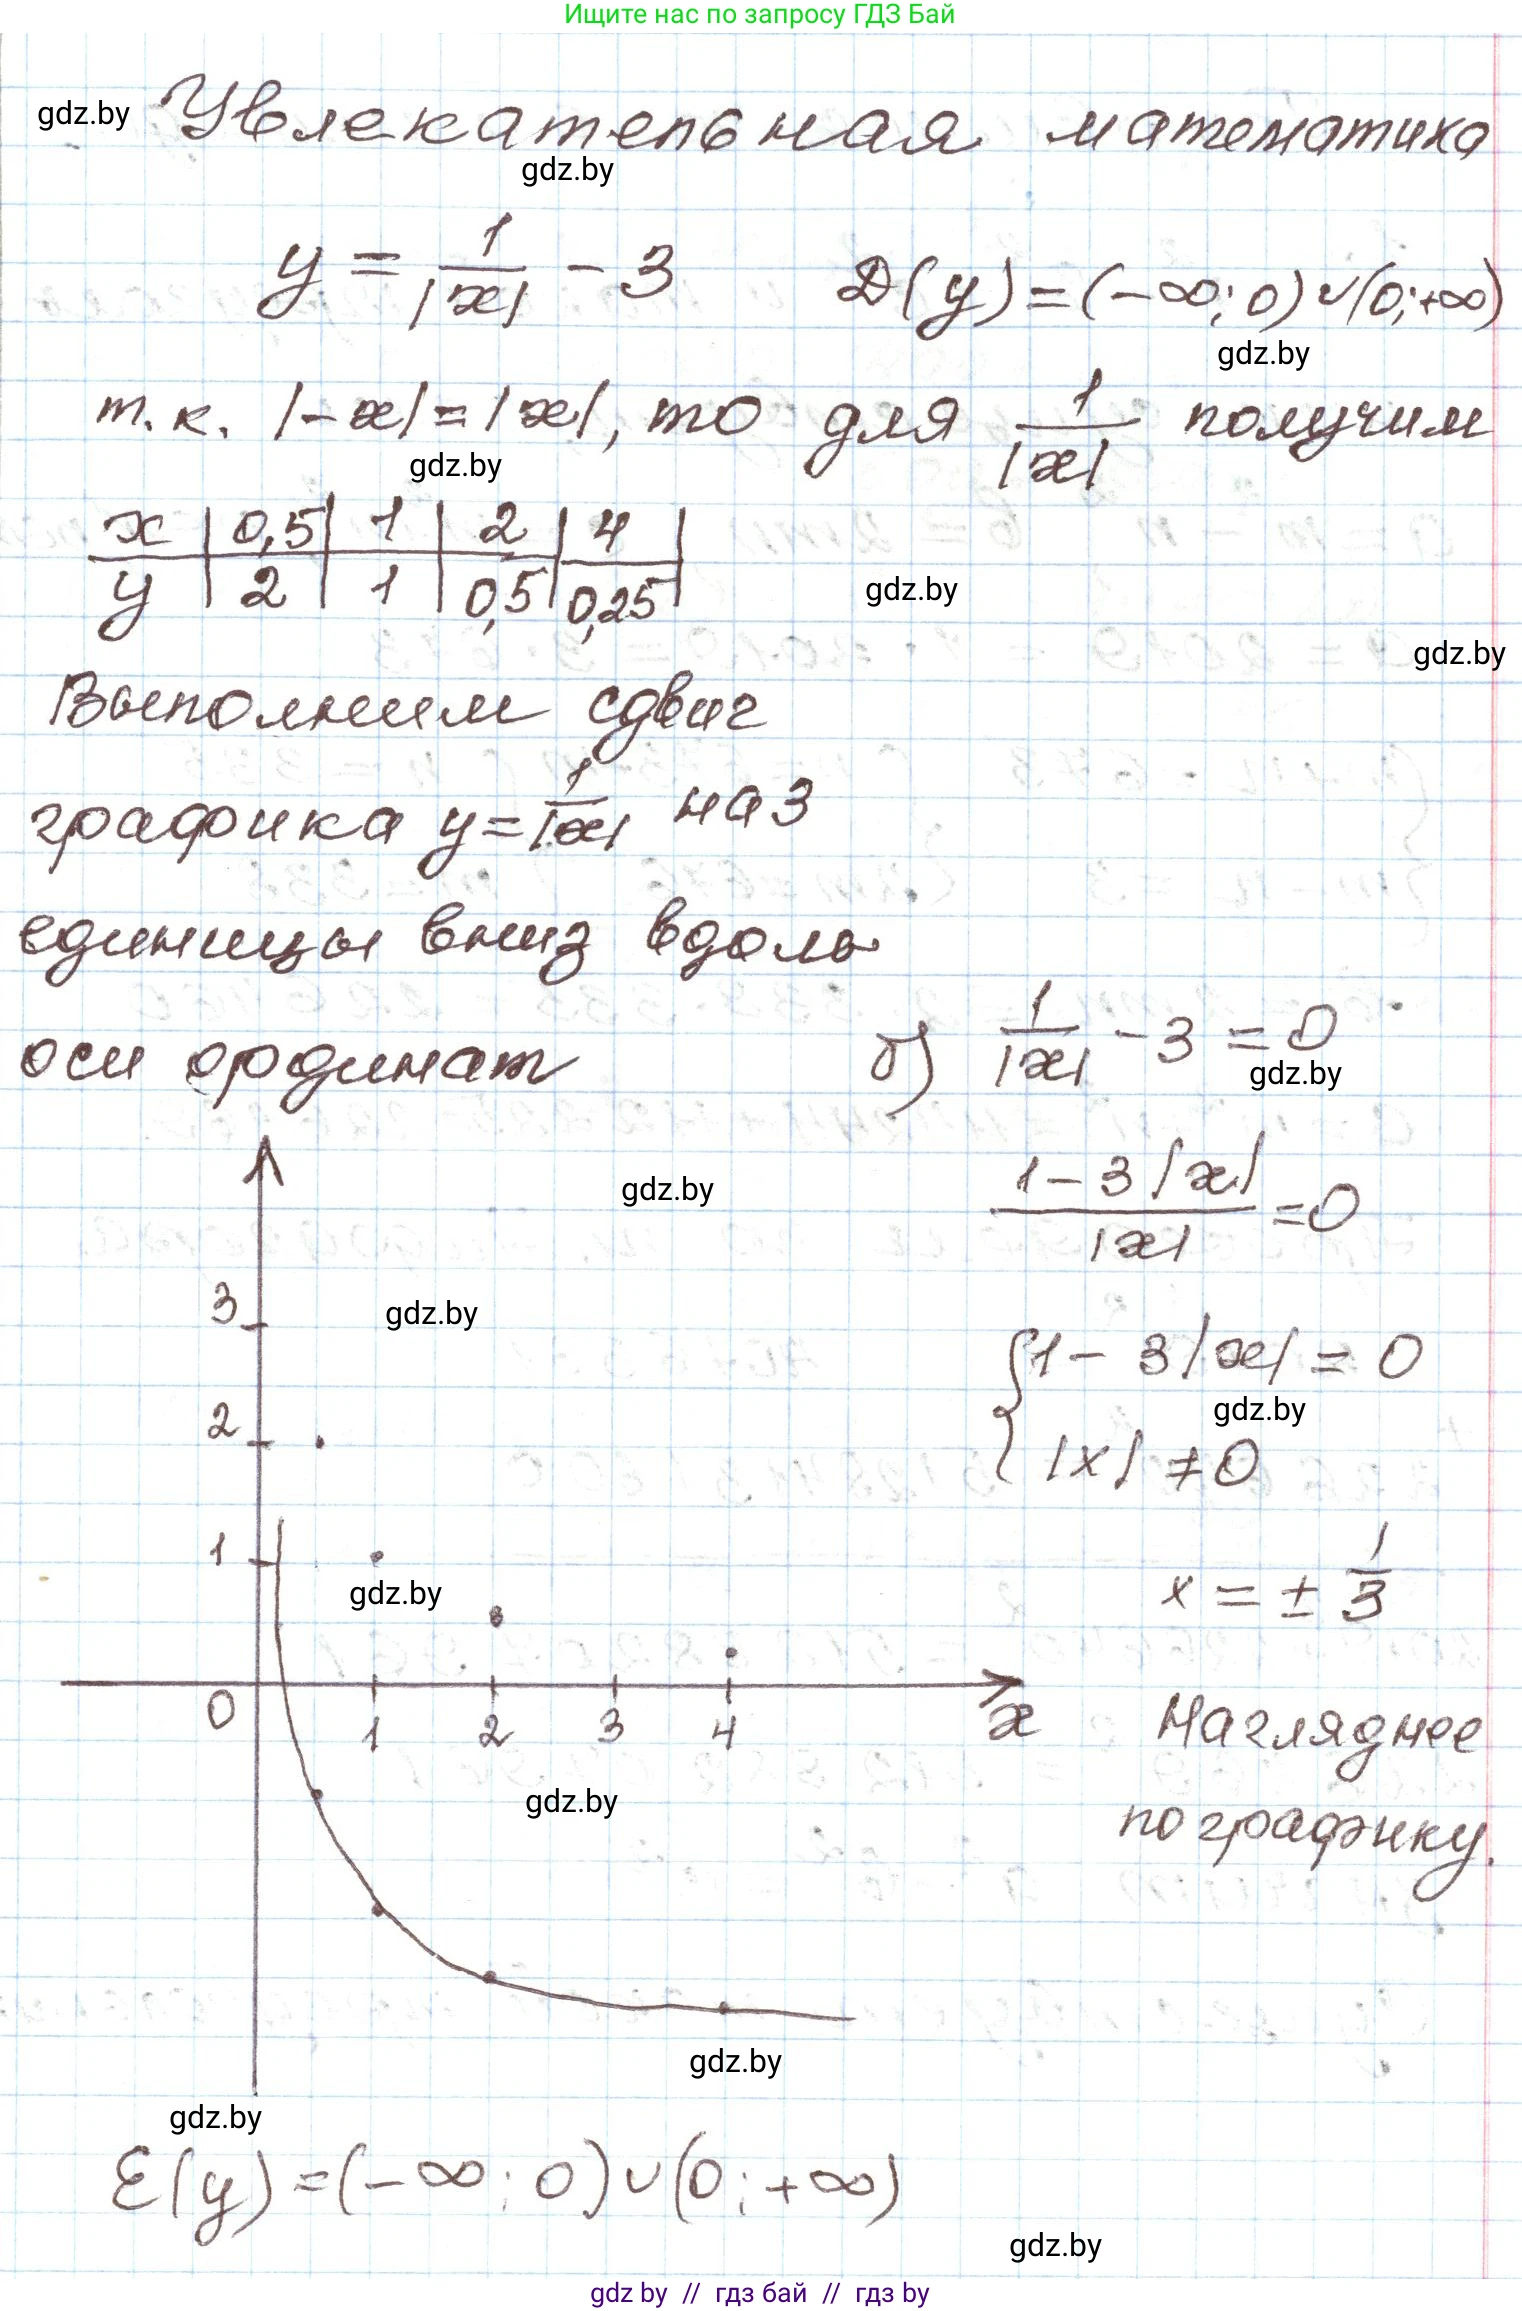 Ищите нас по запросу ГДЗ Бай
gdz.by
Увлекательная математика
gdz.by
y = 1/|x| - 3    D(y) = (-∞; 0) ∪ (0; +∞)
gdz.by
т.к. |-x| = |x|, то для 1/|x| получим
gdz.by
x | 0,5 | 1 | 2 | 4 |
y | 2 | 1 | 0,5 | 0,25 |
gdz.by
gdz.by
Выполним сдвиг
графика y = 1/|x| на 3
единицы вниз вдоль
оси ординат
б) 1/|x| - 3 = 0
gdz.by
(1 - 3|x|)/|x| = 0
gdz.by
3
gdz.by
{ 1 - 3|x| = 0
gdz.by
|x| ≠ 0
2
1
gdz.by
x = ± 1/3
0 1 2 3 4 x
Нагляднее
по графику.
gdz.by
gdz.by
gdz.by
E(y) = (-∞; 0) ∪ (0; +∞)
gdz.by
gdz by // гдз бай // гдз by